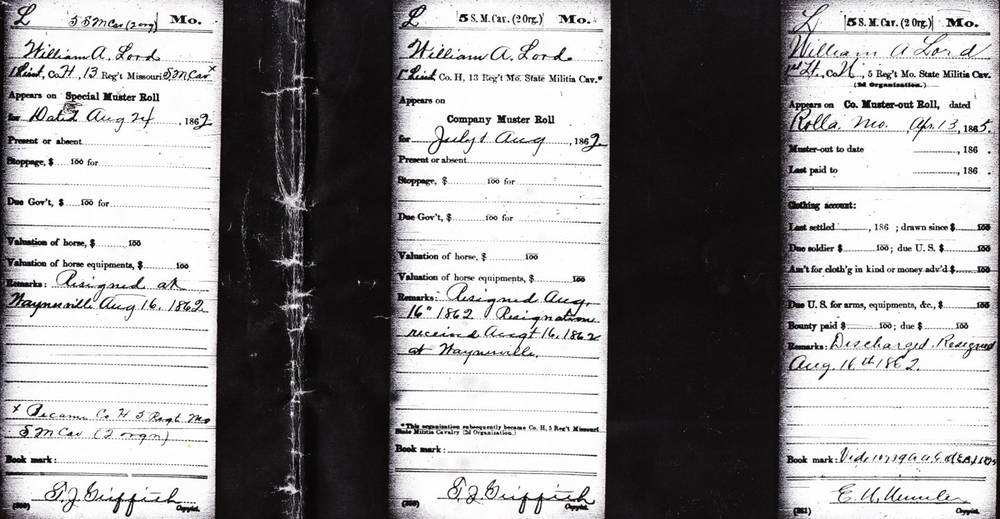 L 5 S M Cav (2 org) Mo.
William A. Lord
1 Lieut, Co. H, 13 Reg't Missouri S M Cav x
Appears on Special Muster Roll
for Dated Aug 24, 1862
Present or absent
Stoppage, $ 100 for
Due Gov't, $ 100 for
Valuation of horse, $ 100
Valuation of horse equipments, $ 100
Remarks: Resigned at
Waynesville Aug 16, 1862
x Became Co H 5 Regt Mo
S M Cav (2 orgn)
Book mark:
T. J. Griffith
Copyist.
L 5 S. M. Cav. (2 Org.) Mo.
William A. Lord
1" Lieut, Co. H, 13 Reg't Mo. State Militia Cav.*
Appears on
Company Muster Roll
for July & Aug, 1862
Present or absent
Stoppage, $ 100 for
Due Gov't, $ 100 for
Valuation of horse, $ 100
Valuation of horse equipments, $ 100
Remarks: Resigned Aug.
16" 1862 Resignation
received Augt 16, 1862
at Waynesville.
*This organization subsequently became Co. H, 5 Reg't Missouri
State Militia Cavalry (2d Organization.)
Book mark:
T. J. Griffith
Copyist.
L 5 S. M. Cav. (2 Org.) Mo.
William A Lord
1st Lt., Co. H, 5 Reg't Mo. State Militia Cav.
(2d Organization.)
Appears on Co. Muster-out Roll, dated
Rolla, Mo. Apr. 13, 1865.
Muster-out to date , 186 .
Last paid to , 186 .
Clothing account:
Last settled , 186 ; drawn since $ 100
Due soldier $ 100; due U. S. $ 100
Am't for cloth'g in kind or money adv'd $ 100
Due U. S. for arms, equipments, &c., $ 100
Bounty paid $ 100; due $ 100
Remarks: Discharged Resigned
Aug. 16th 1862.
Book mark:
(861)
Copyist.